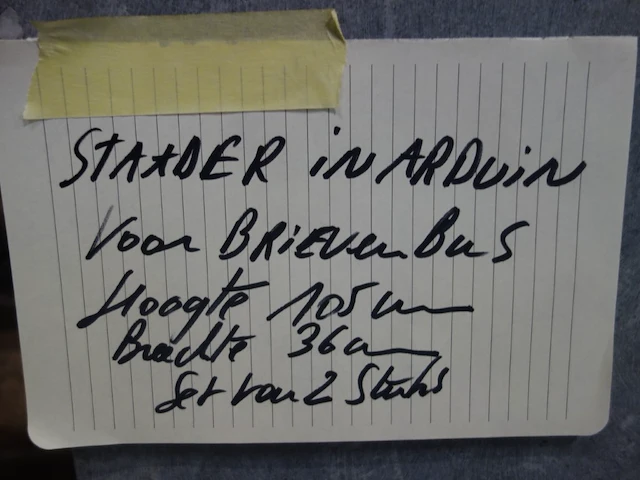 STAADER iN ARDUiN
Voor BRiEVenBuS
Hoogte 105 cm
Breedte 36 cm
Set van 2 Stuks